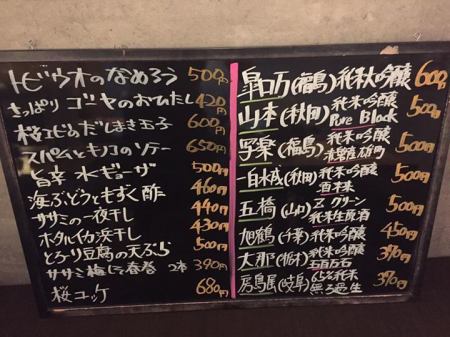 トビウオのなめろう 500円
さっぱりゴーヤのおひたし 420円
桜エビのだしまき玉子 600円
スパムとキノコのソテー 650円
旨辛水ギョーザ 500円
海ぶどうともずく酢 460円
ササミの一夜干し 440円
ホタルイカ浜干し 430円
とろーり豆腐の天ぷら 500円
ササミ梅しそ春巻 2本 390円
桜ユッケ 680円
(福島) 純米吟醸 600円
山本(秋田) 純米吟醸 Pure Black 500円
写楽(福島) 純米吟醸 赤磐雄町 500円
一白水成(秋田) 純米吟醸 500円
五橋(山口) Zグリーン 純米生原酒 500円
旭鶴(千葉) 純米吟醸 450円
大那(栃木) 純米吟醸 五百万石 390円
房島屋(岐阜) 65%純米 無ろ過生 390円